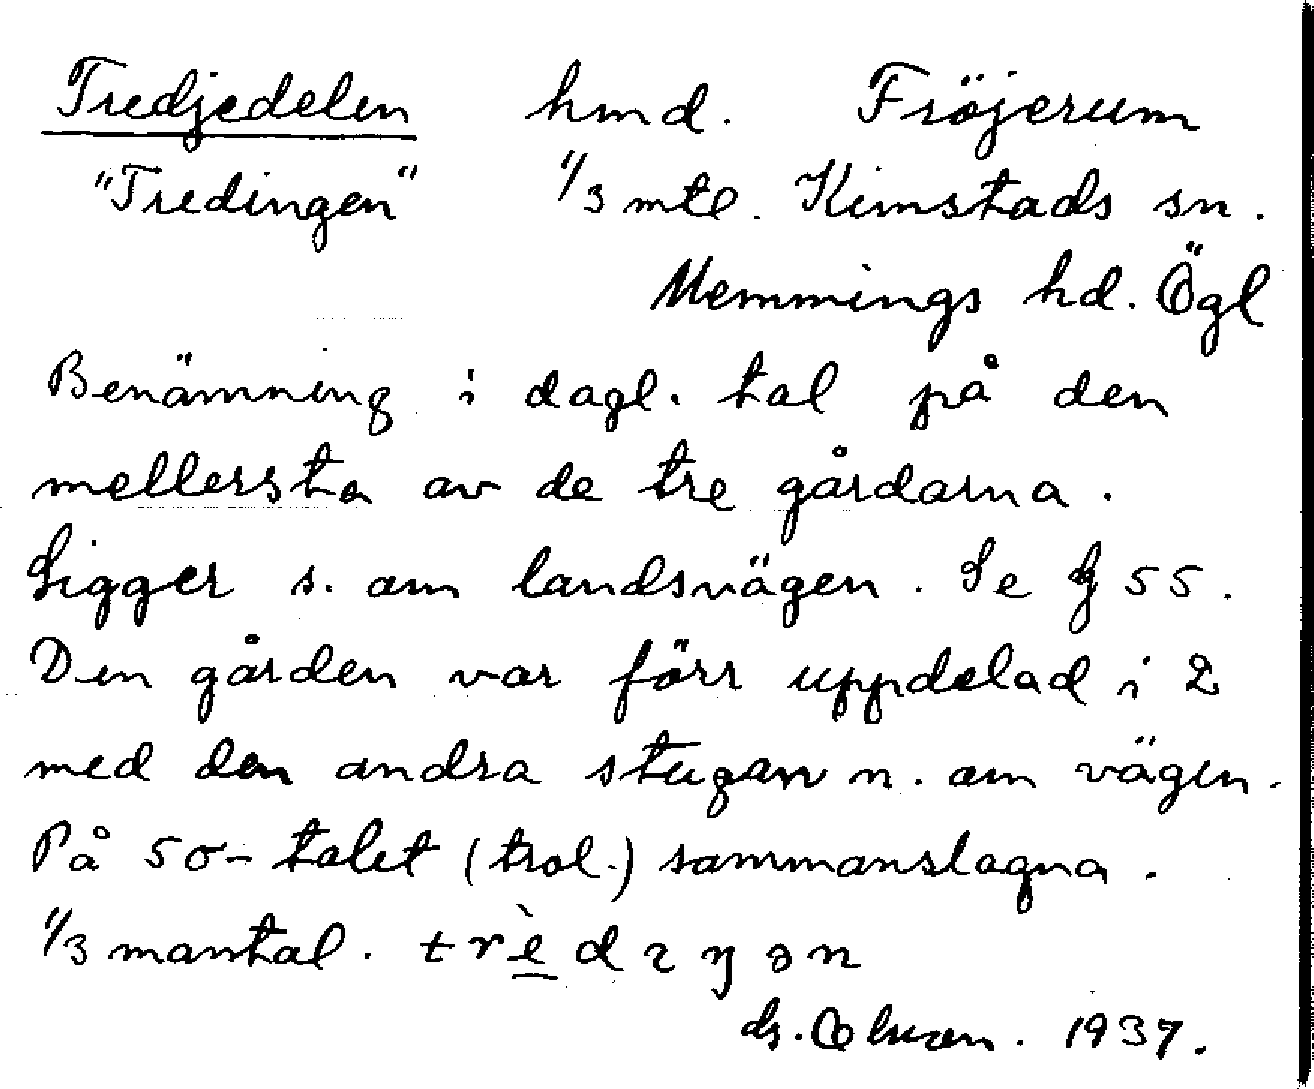 Tredjedelen hmd. Fröjerum
"Tredingen" 1/3 mtl. Kimstads sn.
Memmings hd. Ögl
Benämning i dagl. tal på den
mellersta av de tre gårdarna.
Ligger s. om landsvägen. Se § 55.
Den gården var förr uppdelad i 2
med den andra stugan n. om vägen.
På 50-talet (trol.) sammanslagna.
1/3 mantal. trèdɿŋən
1937.